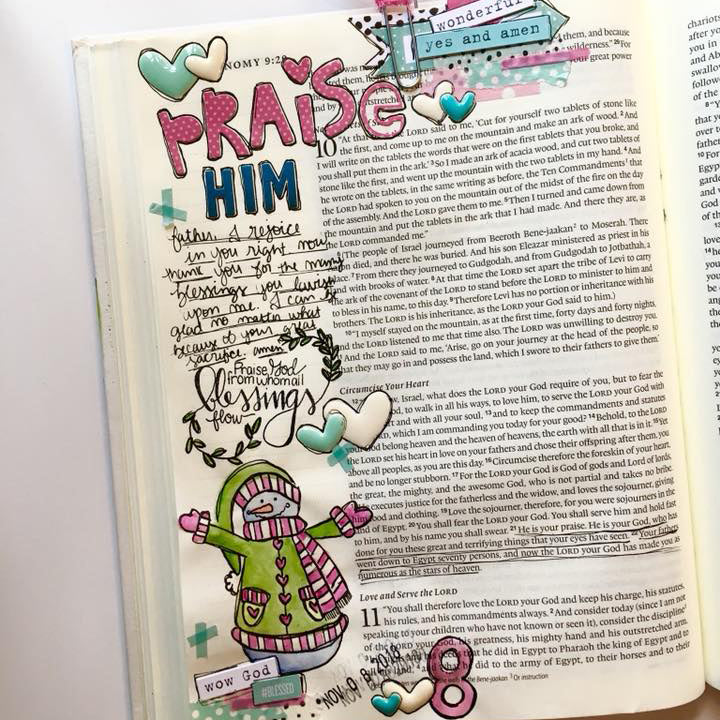 wonderful
yes and amen
NOMY 9:28
PRAISE
HIM
father, I rejoice
in you right now
thank you for the many
blessings you lavish
upon me. I can be
glad no matter what
because of your great
sacrifice. amen
Praise God
from whom all
blessings
flow
them, and because
wilderness." 29 For
your great power
10 "At that the LORD said to me, 'Cut for yourself two tablets of stone like
the first, and come up to me on the mountain and make an ark of wood. 2 And
I will write on the tablets the words that were on the first tablets that you broke, and
you shall put them in the ark.' 3 So I made an ark of acacia wood, and cut two tablets of
stone like the first, and went up the mountain with the two tablets in my hand. 4 And
he wrote on the tablets, in the same writing as before, the Ten Commandments that
the LORD had spoken to you on the mountain out of the midst of the fire on the day
of the assembly. And the LORD gave them to me. 5 Then I turned and came down from
the mountain and put the tablets in the ark that I had made. And there they are, as
the LORD commanded me."
6 (The people of Israel journeyed from Beeroth Bene-jaakan 2 to Moserah. There
n died, and there he was buried. And his son Eleazar ministered as priest in his
place. 7 From there they journeyed to Gudgodah, and from Gudgodah to Jotbathah, a
land with brooks of water. 8 At that time the LORD set apart the tribe of Levi to carry
the ark of the covenant of the LORD to stand before the LORD to minister to him and
to bless in his name, to this day. 9 Therefore Levi has no portion or inheritance with his
brothers. The LORD is his inheritance, as the LORD your God said to him.)
10 "I myself stayed on the mountain, as at the first time, forty days and forty nights,
and the LORD listened to me that time also. The LORD was unwilling to destroy you.
11 And the LORD said to me, 'Arise, go on your journey at the head of the people, so
that they may go in and possess the land, which I swore to their fathers to give them.'
Circumcise Your Heart
12 "And now, Israel, what does the LORD your God require of you, but to fear the
God, to walk in all his ways, to love him, to serve the LORD your God with
heart and with all your soul, 13 and to keep the commandments and statutes
LORD, which I am commanding you today for your good? 14 Behold, to the LORD
your God belong heaven and the heaven of heavens, the earth with all that is in it. 15 Yet
the LORD set his heart in love on your fathers and chose their offspring after them, you
above all peoples, as you are this day. 16 Circumcise therefore the foreskin of your heart,
and be no longer stubborn. 17 For the LORD your God is God of gods and Lord of lords,
the great, the mighty, and the awesome God, who is not partial and takes no bribe.
executes justice for the fatherless and the widow, and loves the sojourner, giving
him food and clothing. 19 Love the sojourner, therefore, for you were sojourners in the
land of Egypt. 20 You shall fear the LORD your God. You shall serve him and hold fast
to him, and by his name you shall swear. 21 He is your praise. He is your God, who has
done for you these great and terrifying things that your eyes have seen. 22 Your fathers
went down to Egypt seventy persons, and now the LORD your God has made you as
numerous as the stars of heaven.
Love and Serve the LORD
11 "You shall therefore love the LORD your God and keep his charge, his statutes,
his rules, and his commandments always. 2 And consider today (since I am not
speaking to your children who have not known or seen it), consider the discipline
of the LORD your God, his greatness, his mighty hand and his outstretched arm,
his deeds that he did in Egypt to Pharaoh the king of Egypt and to
all his land, 4 and what he did to the army of Egypt, to their horses and to their
the Bene-jaakan 3 Or instruction
wow God
#BLESSED
8